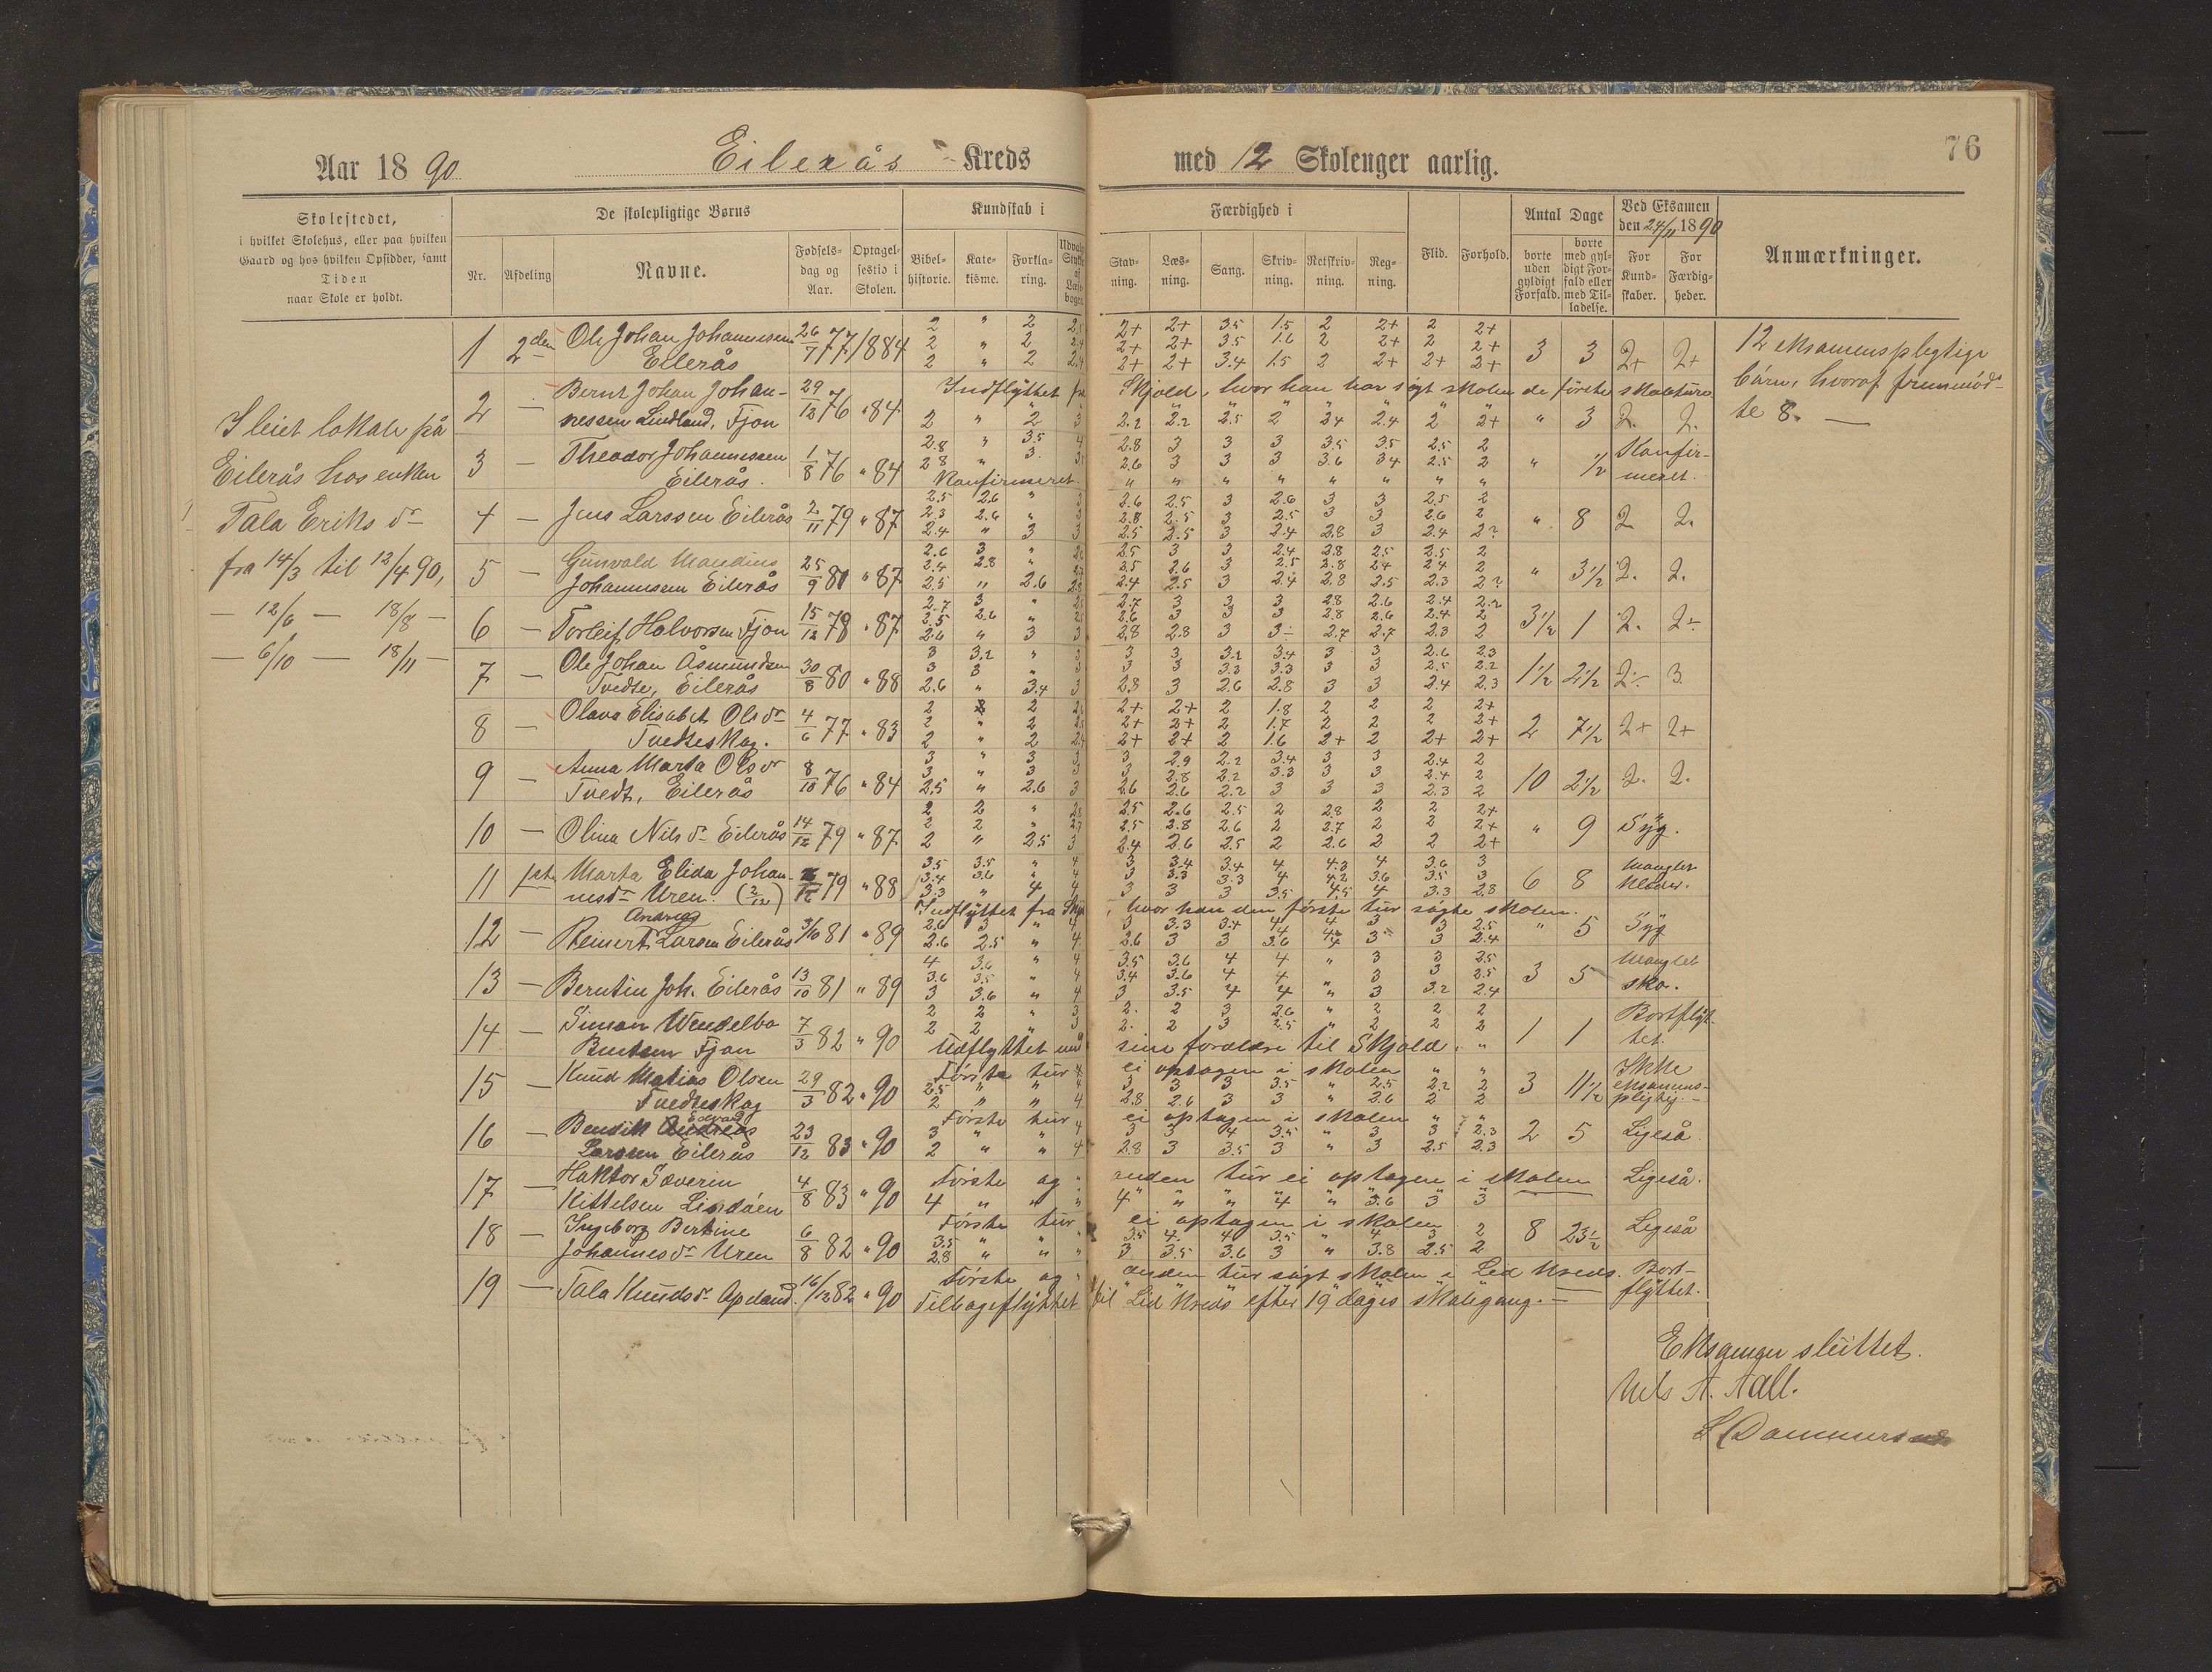 76
Aar 1890 Eilerås Kreds med 12 Skoleuger aarlig.
Skolestedet,
i hvilket Skolehus, eller paa hvilken
Gaard og hos hvilken Opsidder, samt
Tiden
naar Skole er holdt.
De skolepligtige Børns
Nr. Afdeling Navne. Fødsels-dag og Aar. Optagel-sestid i Skolen.
Kundskab i
Bibel-historie. Kate-kisme. Forkla-ring. Udvalgte Stykker af Læse-bogen
Færdighed i
Stav-ning. Læs-ning. Sang. Skriv-ning. Retskriv-ning. Reg-ning.
Flid. Forhold.
Antal Dage
borte uden gyldigt Forfald. borte med gyl-digt For-fald eller med Til-ladelse.
Ved Eksamen
den 24/11 1890
For Kund-skaber. For Færdig-heder.
Anmærkninger.
I leiet lokale på
Eilerås hos enken
Tala Eriks dr
fra 14/3 til 12/4 90,
— 12/6 — 18/8 —
— 6/10 — 18/11 —
1 2den Ole Johan Johannessen Eilerås 26/7 77 1884
2 " 2 2.5 2+ 2+ 3.5 1.5 2 2+ 2 2+
2 " 2 2.4 2+ 2+ 3.5 1.6 2 2+ 2 2+
2 " 2 2.4 2+ 2+ 3.4 1.5 2 2+ 2+ 2+ 3 3 2+ 2+
2 — Bernt Johan Johan-nessen Lindland, Fjon 29/12 76 " 84
Indflyttet fra Skjold, hvor han har søgt skolen de første
2 " 2 3 2.2 2.2 2.5 2 2.4 2.4 2 2+ " 3 2. 2.
3 — Theodor Johannessen Eilerås. 1/8 76 " 84
2.8 " 3.5 4 2.8 3 3 3 3.5 3.5 2.5 2
2.8 " 3. 3.5 2.6 3 3 3 3.6 3.4 2.5 2 " 1/2 Konfir-meret.
Konfirmeret " " " " " " " "
4 — Jens Larssen Eilerås 2/11 79 " 87
2.5 2.6 " 3 2.6 2.5 3 2.6 3 3 2.5 2
2.3 2.6 " 3 2.8 2.5 3 2.5 3 3 2.6 2
2.4 " 3 3 2.5 2.5 3 2.4 2.8 3 2.4 2.2 " 8 2. 2.
5 — Gunvald Johannessen Eilerås 25/9 80 " 87
2.6 3 " 2.6 2.5 3 3 2.4 2.8 2.5 2.5 2
2.4 2.8 " 2.7 2.5 2.6 3 2.5 2.8 2+ 2.4 2
2.5 " 2.6 2.8 2.4 2.5 3 2.4 2.8 2.5 2.3 2.2 " 3 1/2 2. 2.
6 — Torleif Halvorsen Fjon 15/12 78 " 87
2.7 3 " 2.7 3 3 3 2.8 2.6 2.4 2.2
2.5 2.6 " 2.6 3 3 3 2.8 2.6 2.4 2
2.6 " 3 3 2.8 2.8 3 3÷ 2.7 2.7 2.3 2 3 1/2 1 2. 2÷
7 — Ole Johan Åsmundsen Tvedte, Eilerås 30/8 80 " 88
3 3.2 " 3 3 3 3.2 3.4 3 3 2.6 2.3
3 3 " 3 3 3 3.3 3.3 3 3 2.5 2.2
2.6 " 3.4 3 2.8 3 2.6 2.8 3 3 2.4 2.3 1 1/2 2 1/2 2÷ 3
8 — Olava Elisabet Ols dr Tvedteskog. 4/6 77 " 83
2 " 2 2.6 2+ 2+ 2 1.8 2 2 2 2+
2 " 2 2.5 2+ 2+ 2 1.7 2 2 2 2+
2 " 2 2.4 2+ 2+ 2 1.6 2+ 2 2+ 2+ 2 7 1/2 2+ 2+
9 — Anna Marta Ols dr Tvedt, Eilerås 8/10 76 " 84
3 " 3 3 3 2.9 2.2 3.4 3 3 2.4 2
3 " 3 3 3 2.8 2.2 3.3 3 3 2.4 2
2.5 " 2.6 3 2.6 2.6 2.2 3 3 3 2.3 2 10 2 1/2 2. 2.
10 — Olina Nils dr Eilerås 14/12 79 " 87
2 2 " 2.8 2.5 2.6 2.5 2 2.8 2 2 2+
2 2 " 2.7 2.5 2.8 2.6 2 2.7 2 2 2+
2 " 2.5 3 2.4 2.6 2.5 2 2.6 2 2 2+ " 9 Syg.
11 1ste Marta Elida Johan-nesdr Uren. (2/12) 79 " 88
3.5 3.5 " 4 3 3.4 3.4 4 4.3 4 3.6 3
3.4 3.6 " 4 3 3.3 3.3 4 4.2 3.6 3.5 3
3.3 " 4 4 3 3 3 3.5 4.5 4 3.3 2.8 6 8 Mangler klæder.
12 — Reinert Andreas Larsen Eilerås 3/10 81 " 89
Indflyttet fra Skjold, hvor han den første tur søgte skolen.
2.6 3 " 4 3 3.3 3.4 4 4 3 3 2.5
2.6 2.5 " 4 2.6 3 3 3.6 4 3 3 2.4 " 5 Syg
13 — Berntin Joh. Eilerås 13/10 81 " 89
4 3.6 " 4 3.5 3.6 4 4 " 3 3 2.5
3.6 3.5 " 4 3.4 3.6 4 4 " 3 3 2.5
3 3.6 " 4 3 3.5 4 4 " 3 3.2 2.4 3 5 Manglet sko.
14 — Simon Wendelbo Berntsen Fjon 7/3 82 " 90
2 2 " 3 2. 2 3 2.6 " 2 2 2
2 2 " 3 2. 2 3 2.5 " 2 2 2 1 1 Bortflyt-tet.
Udflyttet med sine forældre til Skjold. "
15 — Knud Matias Olsen Tvedteskog 29/3 82 " 90
Første tur ei optagen i skolen " "
2.5 " " 4 3 3 3 3.5 " 2.5 2.2 2
2 " " 4 2.8 2.6 3 3 " 2.6 2 2 3 11 1/2 Ikke eksamens-pligtig. —
16 — Bendik Edvard Larssen Eilerås 23/12 83 " 90
Første tur ei optagen i skolen " "
3 " " 4 3 3 4 3.5 " 3 3 2.3
2 " " 4 2.8 3 3.5 3 " 3 2.5 2.3 2 5 Ligeså.
17 — Haktor Severin Kittelsen Lindåen 4/8 83 " 90
Første og anden tur ei optagen i skolen Ligeså.
4 " " " 4 " " 4 " 3.6 3 3
18 — Ingeborg Bertine Johannesdr Uren 6/8 82 " 90
Første tur ei optagen i skolen
3.5 " " " 3.5 4 4 3.5 " 4 3 2
2.8 " " " 3 3.5 3.6 3 " 3.8 2.5 2 8 23 1/2 Ligeså
19 — Tala Knuds dr Apeland. 16/12 82 " 90
Første og anden tur søgt skolen i Lid Kreds. Bort-flyttet.
Tilbageflyttet til Lid Kreds efter 19 dages skolegang. —
12 eksamensplegtige
børn, hvoraf fremmød-
te 8. —
Eksamen sluttet.
Nils A. Aall.